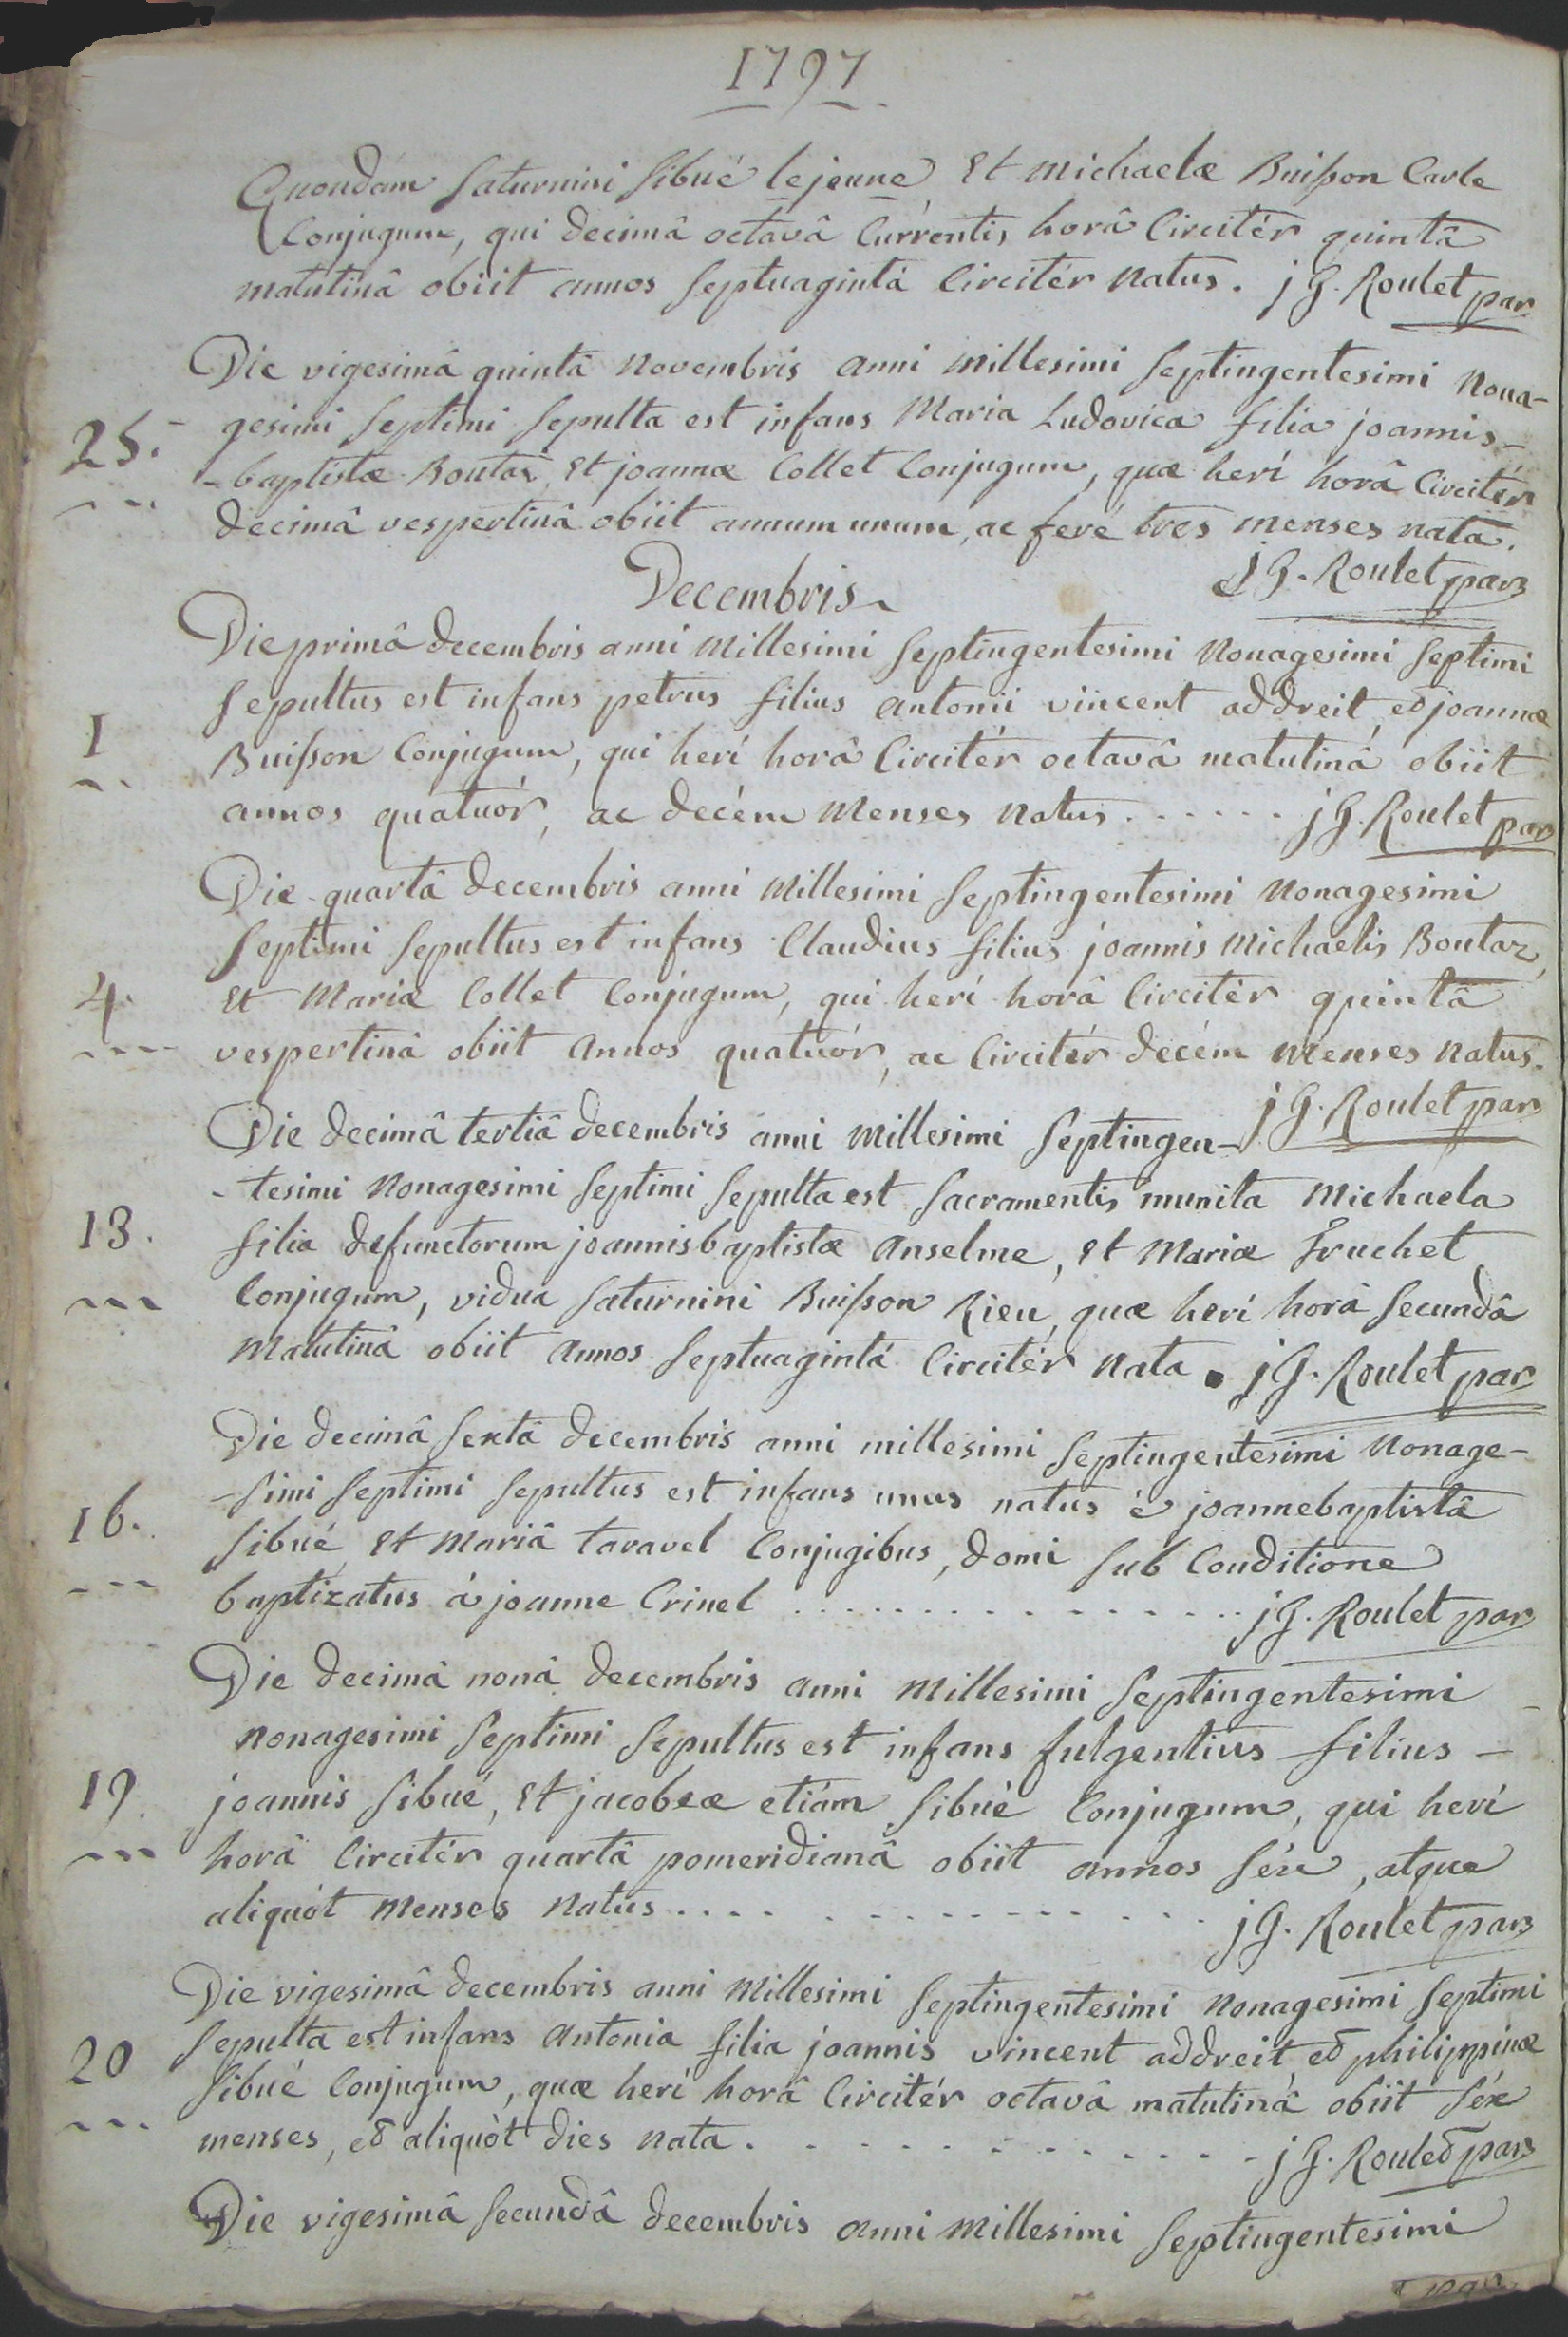 1797
Quondam Saturnini Sibué le jeune et Michaelæ Buisson Carle
Conjugum, qui decimâ octavâ Currentis horâ Circitér quintâ
matutinâ obiit annos Septuagintá Circitér natus. j G. Roulet par
Die vigesimâ quintâ Novembris anni Millesimi Septingentesimi Nona-
25. gesimi Septimi Sepulta est infans Maria Ludovica filia joannis-
-baptistæ Boutaz, et joannæ Collet Conjugum, quæ herí horâ Circitér
decimâ vespertinâ obiit annum unum, ac feré tres menses nata.
j G. Roulet par
Decembris
Die primâ decembris anni Millesimi Septingentesimi Nonagesimi Septimi
Sepultus est infans petrus filius antonii vincent addreit, et joannæ
1 Buisson Conjugum, qui herí horâ Circitér octavâ matutinâ obiit
annos quatuór, ac decém Menses Natus . . . . . . j G. Roulet par
Die quartâ decembris anni Millesimi Septingentesimi Nonagesimi
Septimi Sepultus est infans Claudius filius joannis Michaelis Boutaz,
4. et Mariæ Collet Conjugum, qui herí horâ Circitér quintâ
vespertinâ obiit annos quatuór, ac Circitér decém Menses Natus.
j G. Roulet par
Die decimâ tertiâ decembris anni Millesimi Septingen-
-tesimi Nonagesimi Septimi Sepulta est Sacramentis munita Michaela
13. filia defunctorum joannisbaptistæ Anselme, et Mariæ Truchet
Conjugum, vidua Saturnini Buisson Rieu, quæ herí horâ Secundâ
Matutinâ obiit annos Septuagintá Circitér Nata . j G. Roulet par
Die decimâ Sextâ decembris anni millesimi Septingentesimi Nonage-
-simi Septimi Sepultus est infans unus natus é joannebaptistâ
16. Sibué, et Mariâ taravel Conjugibus, domi Sub Conditione
baptizatus á joanne Crinel . . . . . . . . . . . . . . . j G. Roulet par
Die decimâ nonâ decembris anni Millesimi Septingentesimi
Nonagesimi Septimi Sepultus est infans fulgentius filius -
19. joannis Sibué, et jacobeæ etiám Sibué Conjugum, qui herí
horâ Circitér quartâ pomeridianâ obiit annos Séx, atque
aliquót Menses Natus . . . . . . . . . . . . . j G. Roulet par
Die vigesimâ decembris anni Millesimi Septingentesimi Nonagesimi Septimi
Sepulta est infans Antonia filia joannis vincent addreit, et philippinæ
20 Sibué Conjugum, quæ herí horâ Circitér octavâ matutinâ obiit Séx
menses, et aliquót dies nata . . . . . . . . . . . . j G. Roulet par
Die vigesimâ Secundâ decembris anni Millesimi Septingentesimi